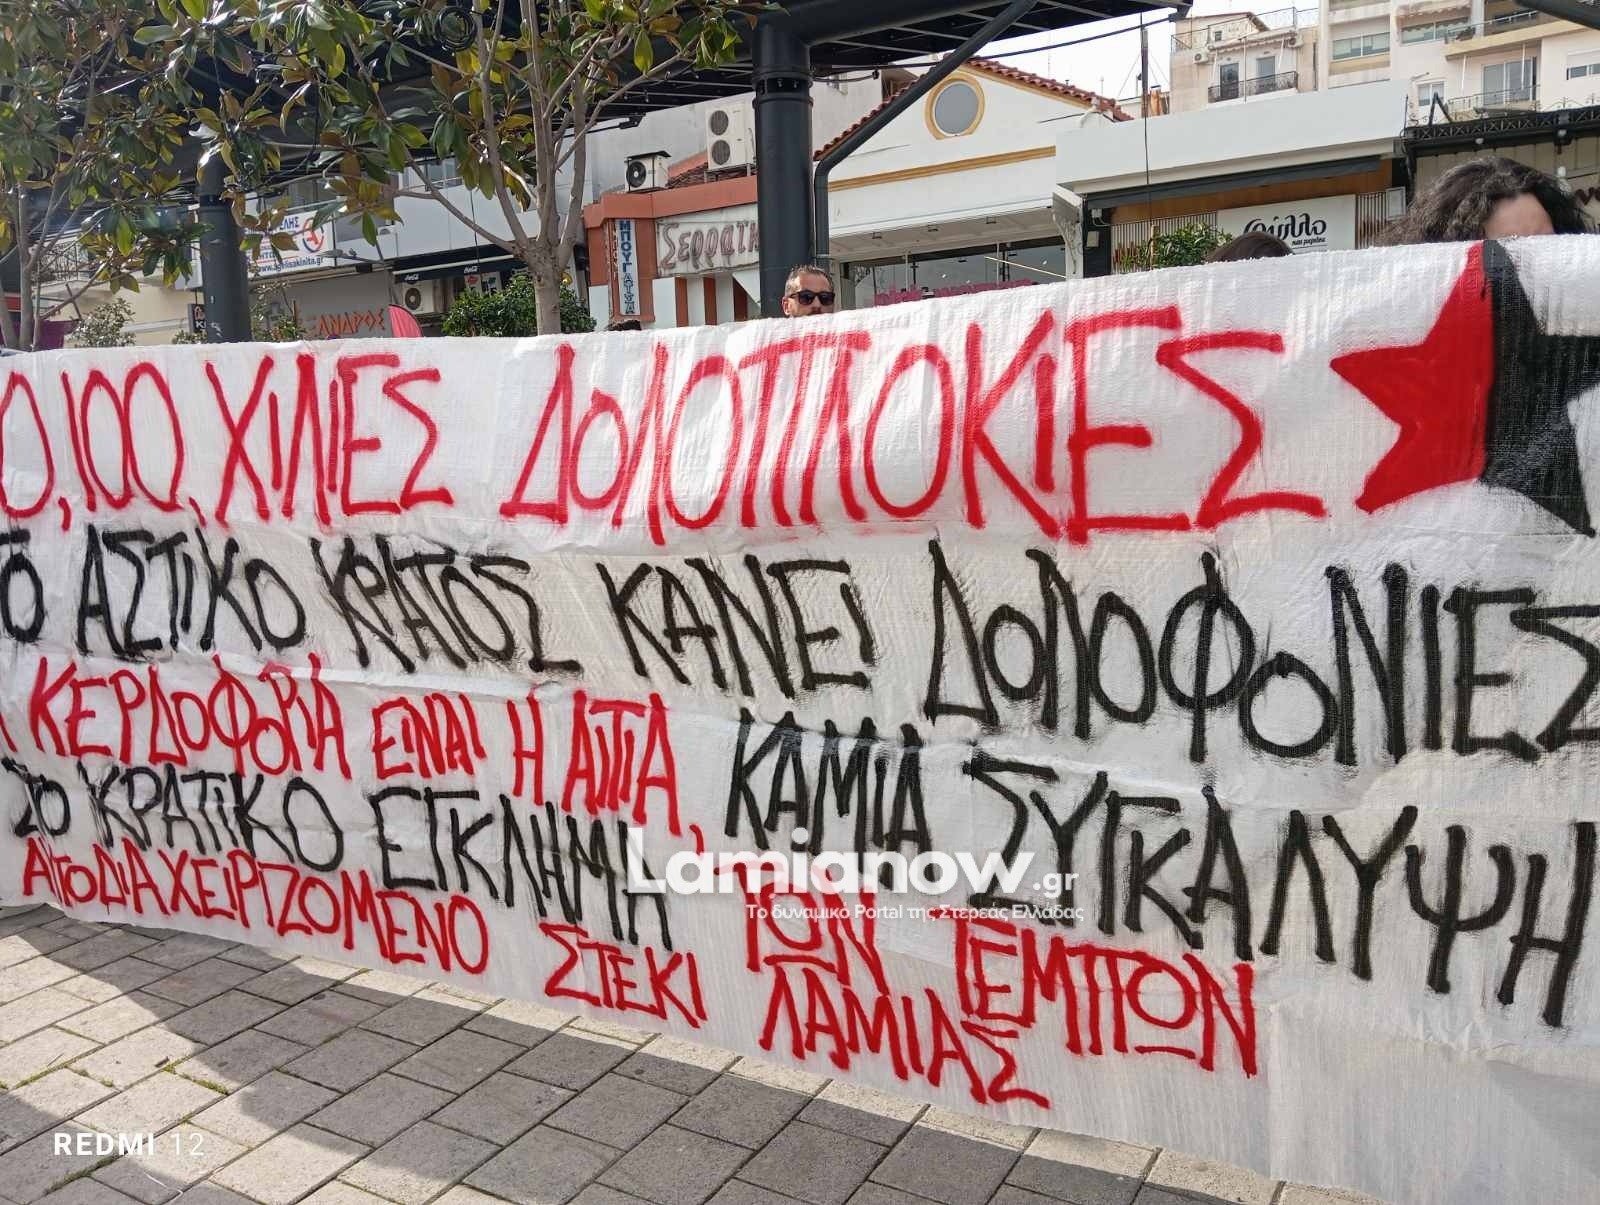 ΜΠΟΥΓΑΤΣΑ
Σερραϊκ
Φύλλο
www.agelisakinita.gr
0,100, ΧΙΛΙΕΣ ΔΟΛΟΠΛΟΚΙΕΣ
ΤΟ ΑΣΤΙΚΟ ΚΡΑΤΟΣ ΚΑΝΕΙ ΔΟΛΟΦΟΝΙΕΣ
Η ΚΕΡΔΟΦΟΡΙΑ ΕΙΝΑΙ Η ΑΙΤΙΑ, ΚΑΜΙΑ ΣΥΓΚΑΛΥΨΗ
ΣΤΟ ΚΡΑΤΙΚΟ ΕΓΚΛΗΜΑ ΤΩΝ ΤΕΜΠΩΝ
ΑΥΤΟΔΙΑΧΕΙΡΙΖΟΜΕΝΟ ΣΤΕΚΙ ΛΑΜΙΑΣ
Lamianow.gr
Το δυναμικό Portal της Στερεάς Ελλάδας
REDMI 12